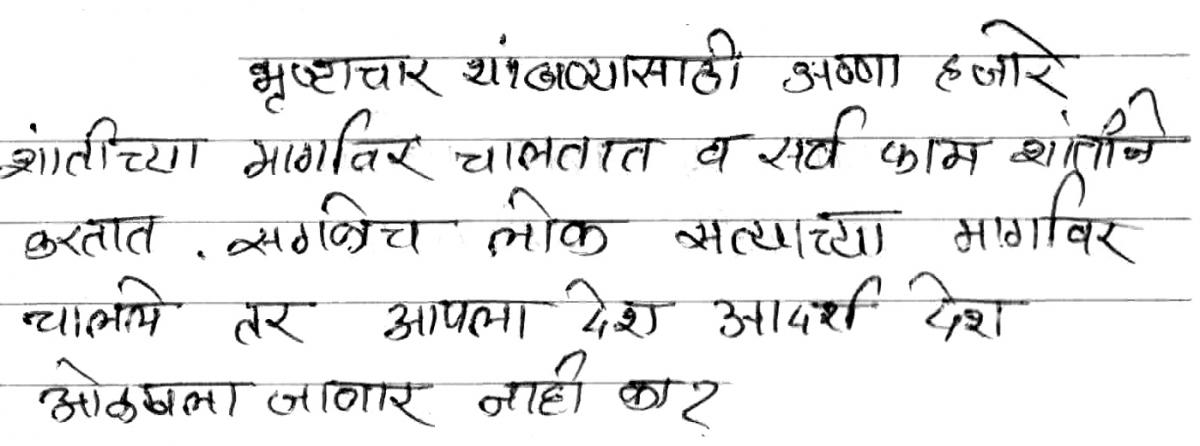 भृष्टाचार थांबवण्यासाठी अण्णा हजारे
शांतीच्या मार्गावर चालतात व सर्व काम शांतीने
करतात . सगळेच लोक सत्याच्या मार्गावर
चालले तर आपला देश आदर्श देश
ओळखला जाणार नाही का?